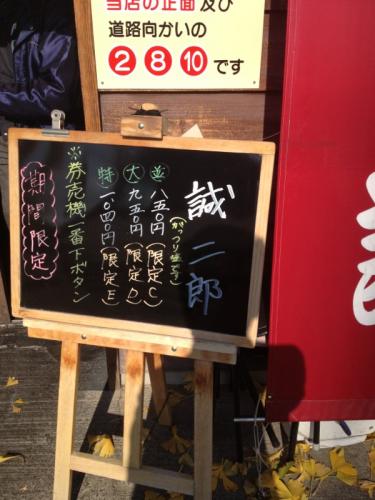 当店の正面及び
道路向かいの
2 8 10 です
誠二郎
(がっつり塩です)
並 八五〇円(限定C)
大 九五〇円(限定D)
特 一、〇四〇円(限定E)
※券売機一番下ボタン
期間限定